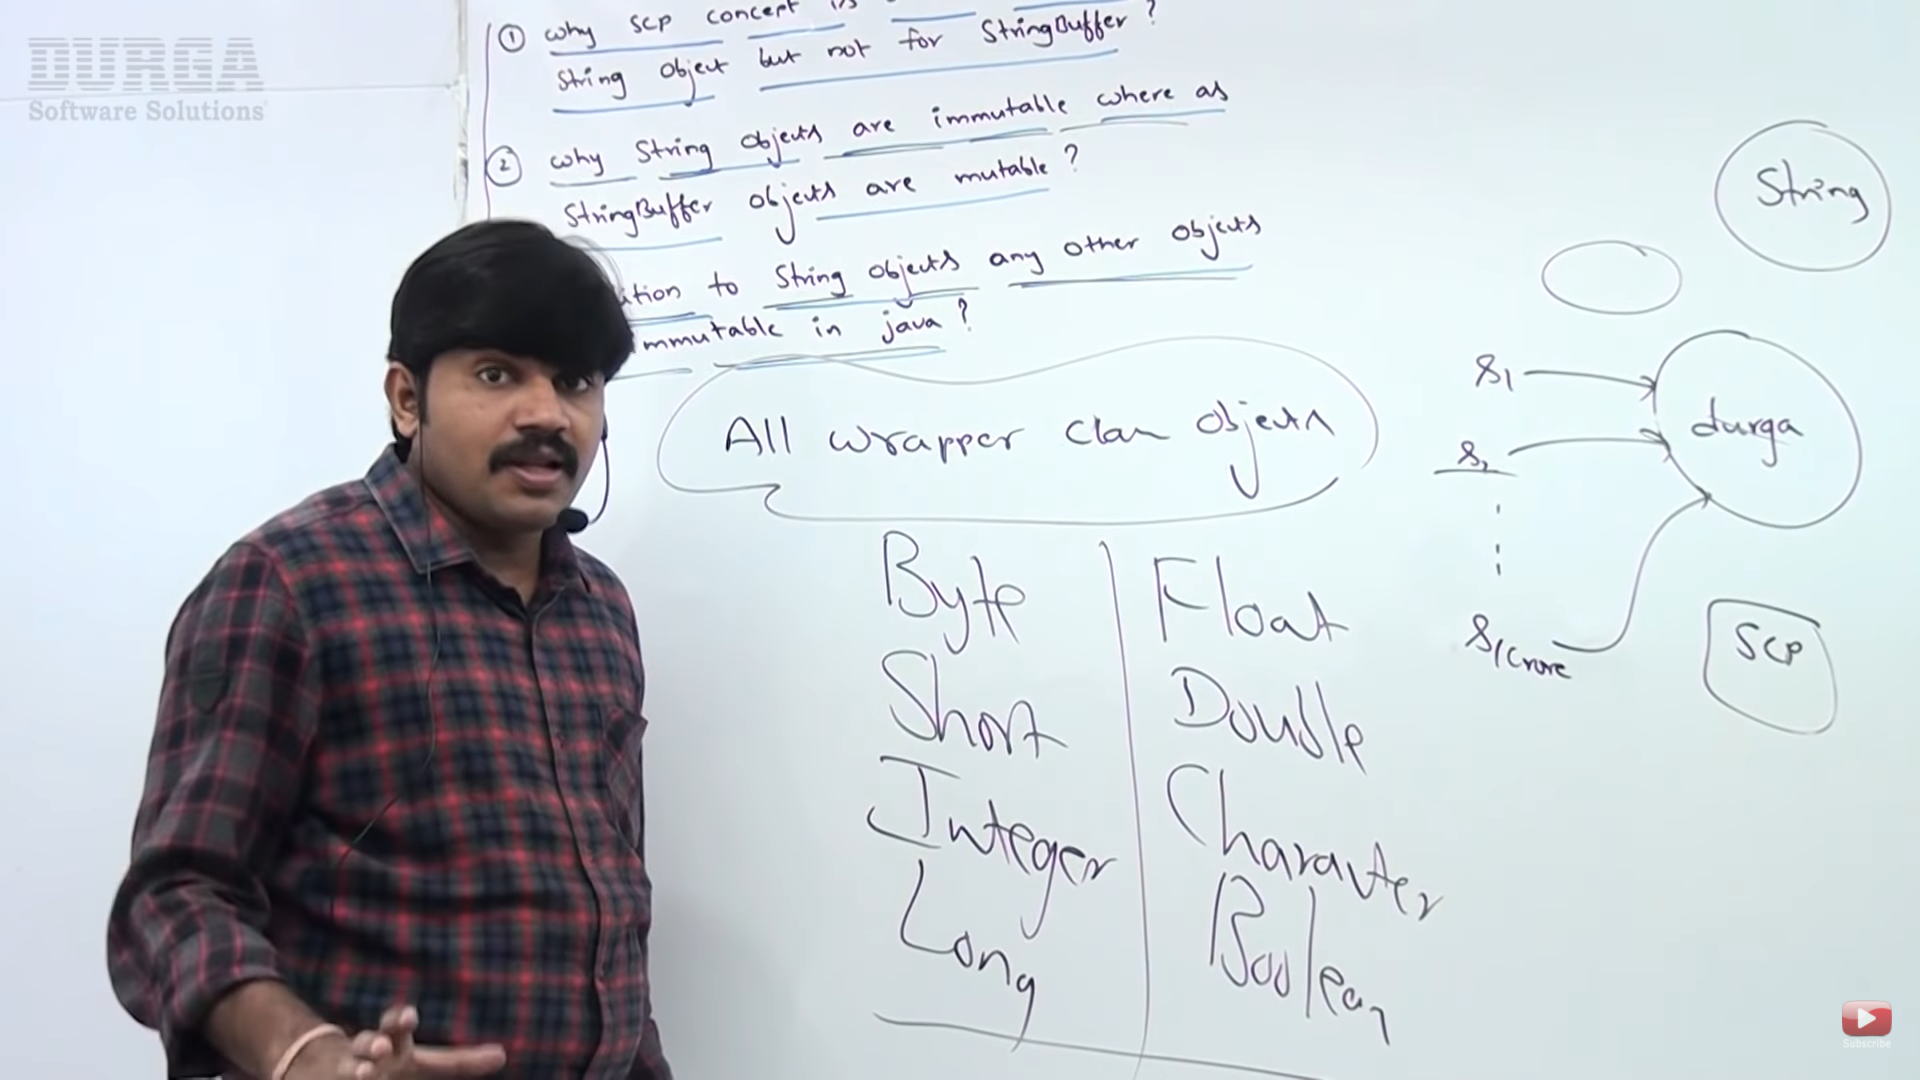 DURGA
Software Solutions
① why SCP concept is
String object but not for StringBuffer ?
② why String objects are immutable where as
StringBuffer objects are mutable ?
to String objects any other objects
in java ?
All wrapper class objects
Byte
Short
Integer
Long
Float
Double
Character
Boolean
String
S1
S2
S1crore
durga
SCP
Subscribe